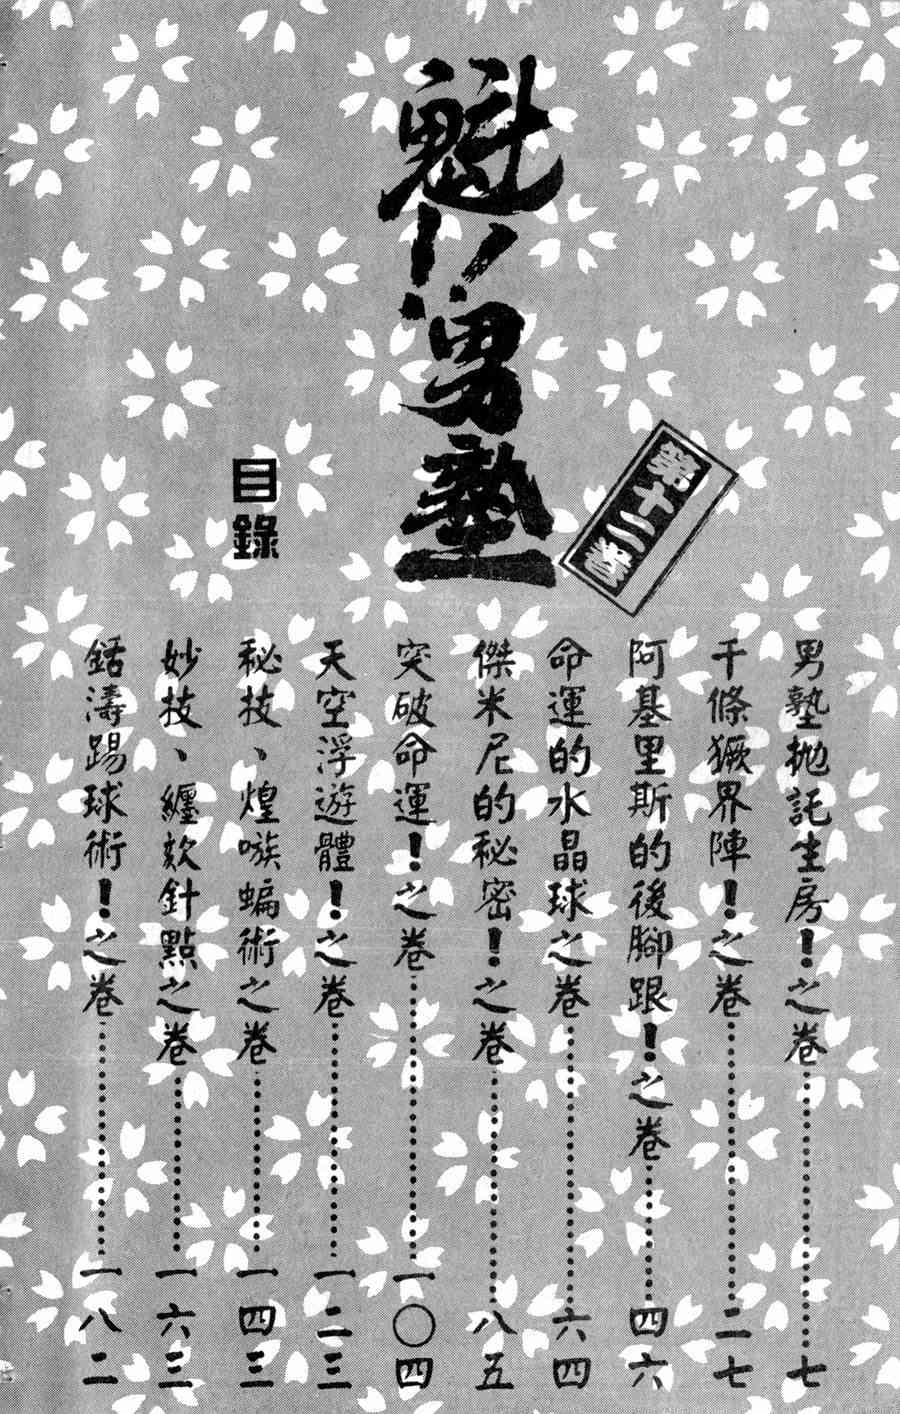 魁!!男塾
第十二巻
目錄
男塾拋託生房!之巻…………七
千條獗界陣!之巻…………二七
阿基里斯的後腳跟!之巻…………四六
命運的水晶球之巻…………六四
傑米尼的秘密!之巻…………八五
突破命運!之巻…………一〇四
天空浮遊體!之巻…………一二三
秘技、煌嗾蝙術之巻…………一四三
妙技、纏欬針點之巻…………一六三
錯濤踢球術!之巻…………一八二